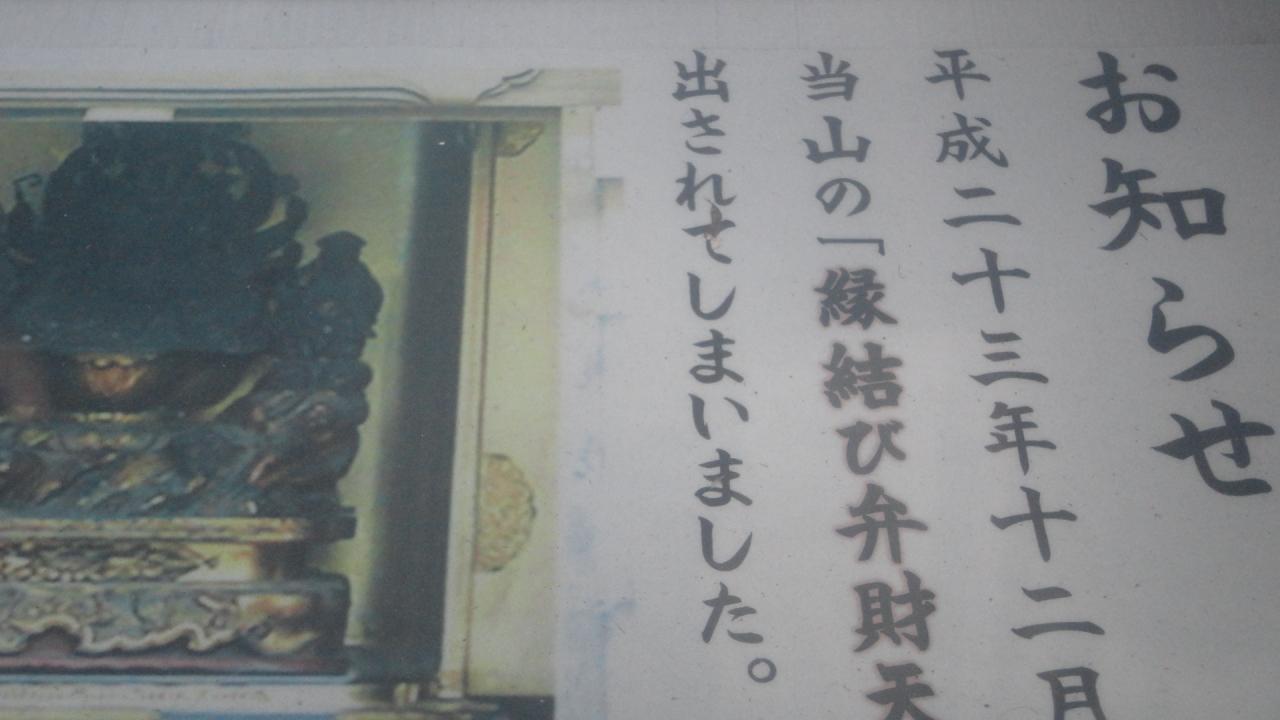 お知らせ
平成二十三年十二月
当山の「縁結び弁財天
出されてしまいました。